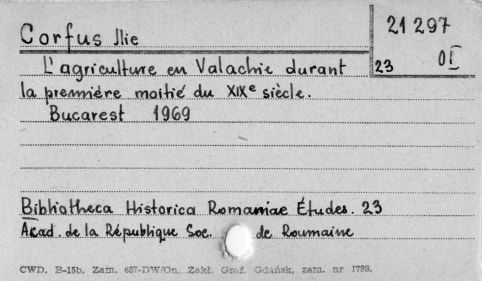 Corfus Ilie
21 297
23 OI
L'agriculture en Valachie durant
la première moitié du XIXe siècle.
Bucarest 1969
Bibliotheca Historica Romaniae Études. 23
Acad. de la République Soc. de Roumaine
CWD. B-15b. Zam. 657-DW/On. Zakł. Graf. Gdańsk, zam. nr 1796.